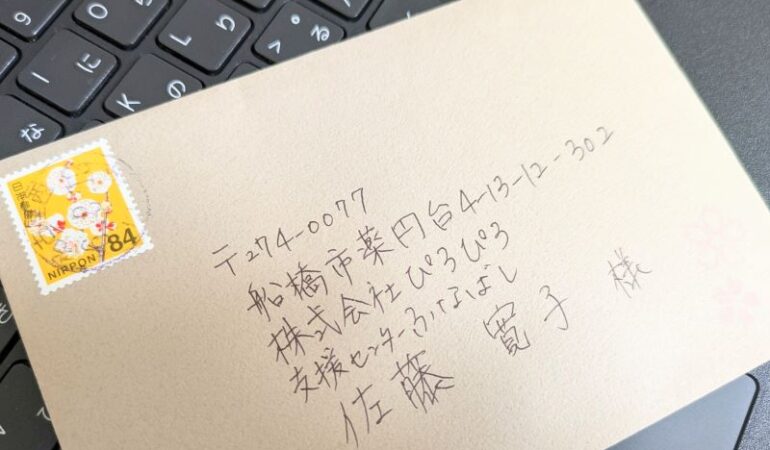 〒274-0077
船橋市薬円台4-13-12-302
株式会社ぴろぴろ
支援センターふなばし
佐藤 寛子 様
日本郵便
84
NIPPON
9
よ
I
に
L
り
K
の
る
な